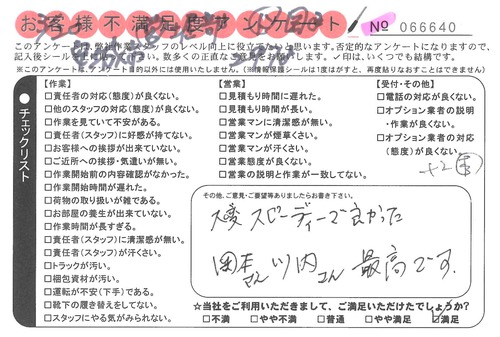 お客様不満足度アンケート No 066640
このアンケートは、弊社作業スタッフのレベル向上に役立てたいと思います。否定的なアンケートになりますので、
記入後シールで数多くの正直なご意見をお願いします。✓印は、いくつでも結構です。
※このアンケートは、アンケート目的以外には使用いたしません。(※情報保護シールは1度はがすと、再度貼りなおすことはできません)
チェックリスト
【作業】
□責任者の対応(態度)が良くない。
□他のスタッフの対応(態度)が良くない。
□作業を見ていて不安がある。
□責任者(スタッフ)に好感が持てない。
□お客様への挨拶が出来ていない。
□ご近所への挨拶・気遣いが無い。
□作業開始前の内容確認がなかった。
□作業開始時間が遅れた。
□荷物の取り扱いが雑である。
□お部屋の養生が出来ていない。
□作業時間が長すぎる。
□責任者(スタッフ)に清潔感が無い。
□責任者(スタッフ)が汗くさい。
□トラックが汚い。
□梱包資材が汚い。
□運転が不安(下手)である。
□靴下の履き替えをしてない。
□スタッフにやる気がみられない。
【営業】
□見積もり時間に遅れた。
□見積もり時間が長い。
□営業マンに清潔感が無い。
□営業マンが煙草くさい。
□営業マンが汗くさい。
□営業態度が良くない。
□営業の説明と作業が一致してない。
【受付・その他】
□電話の対応が良くない。
□オプション業者の説明
・作業が良くない。
□オプション業者の対応
(態度)が良くない。
+2
その他、ご意見・ご要望等ありましたらお書き下さい。
大変 スピーディーで良かった
岡本さん 川内さん 最高です。
☆当社をご利用いただきまして、ご満足いただけたでしょうか?
□不満 □やや不満 □普通 □やや満足 ☑満足